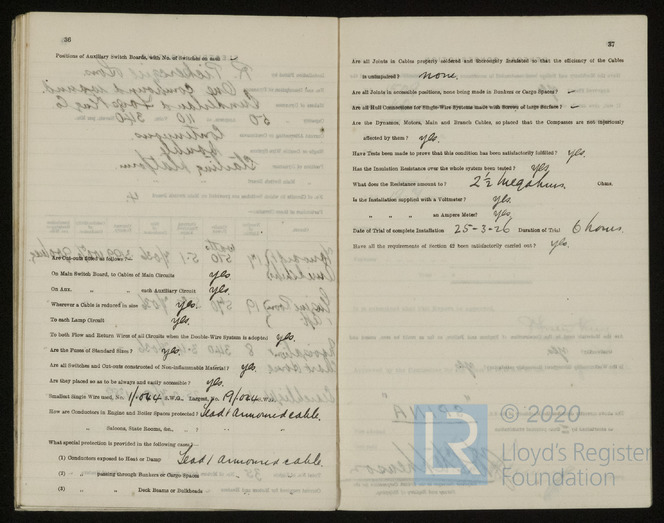 36
Positions of Auxiliary Switch Boards, with No. of Switches on each –
Are Cut-outs fitted as follows:—
On Main Switch Board, to Cables of Main Circuits yes.
On Aux. " " each Auxiliary Circuit yes.
Wherever a Cable is reduced in size yes.
To each Lamp Circuit yes.
To both Flow and Return Wires of all Circuits when the Double-Wire System is adopted yes.
Are the Fuses of Standard Sizes? yes.
Are all Switches and Cut-outs constructed of Non-inflammable Material? yes.
Are they placed so as to be always and easily accessible? yes.
Smallest Single Wire used, No. 1/.044 S.W.G., Largest, No. 19/.044 S.W.G.
How are Conductors in Engine and Boiler Spaces protected? Lead & armoured cable.
" Saloons, State Rooms, &c., " ?
What special protection is provided in the following cases?
(1) Conductors exposed to Heat or Damp Lead & armoured cable.
(2) " passing through Bunkers or Cargo Spaces
(3) " " Deck Beams or Bulkheads
37
Are all Joints in Cables properly soldered and thoroughly insulated so that the efficiency of the Cables
is unimpaired? none.
Are all Joints in accessible positions, none being made in Bunkers or Cargo Spaces? –
Are all Hull Connections for Single-Wire Systems made with Screws of large Surface? –
Are the Dynamos, Motors, Main and Branch Cables, so placed that the Compasses are not injuriously
affected by them? yes.
Have Tests been made to prove that this condition has been satisfactorily fulfilled? yes.
Has the Insulation Resistance over the whole system been tested? yes
What does the Resistance amount to? 2½ megohms. Ohms.
Is the Installation supplied with a Voltmeter? yes.
" " " an Ampere Meter? yes.
Date of Trial of complete Installation 25-3-26 Duration of Trial 6 hours.
Have all the requirements of Section 42 been satisfactorily carried out? yes.
LR
© 2020
Lloyd's Register
Foundation